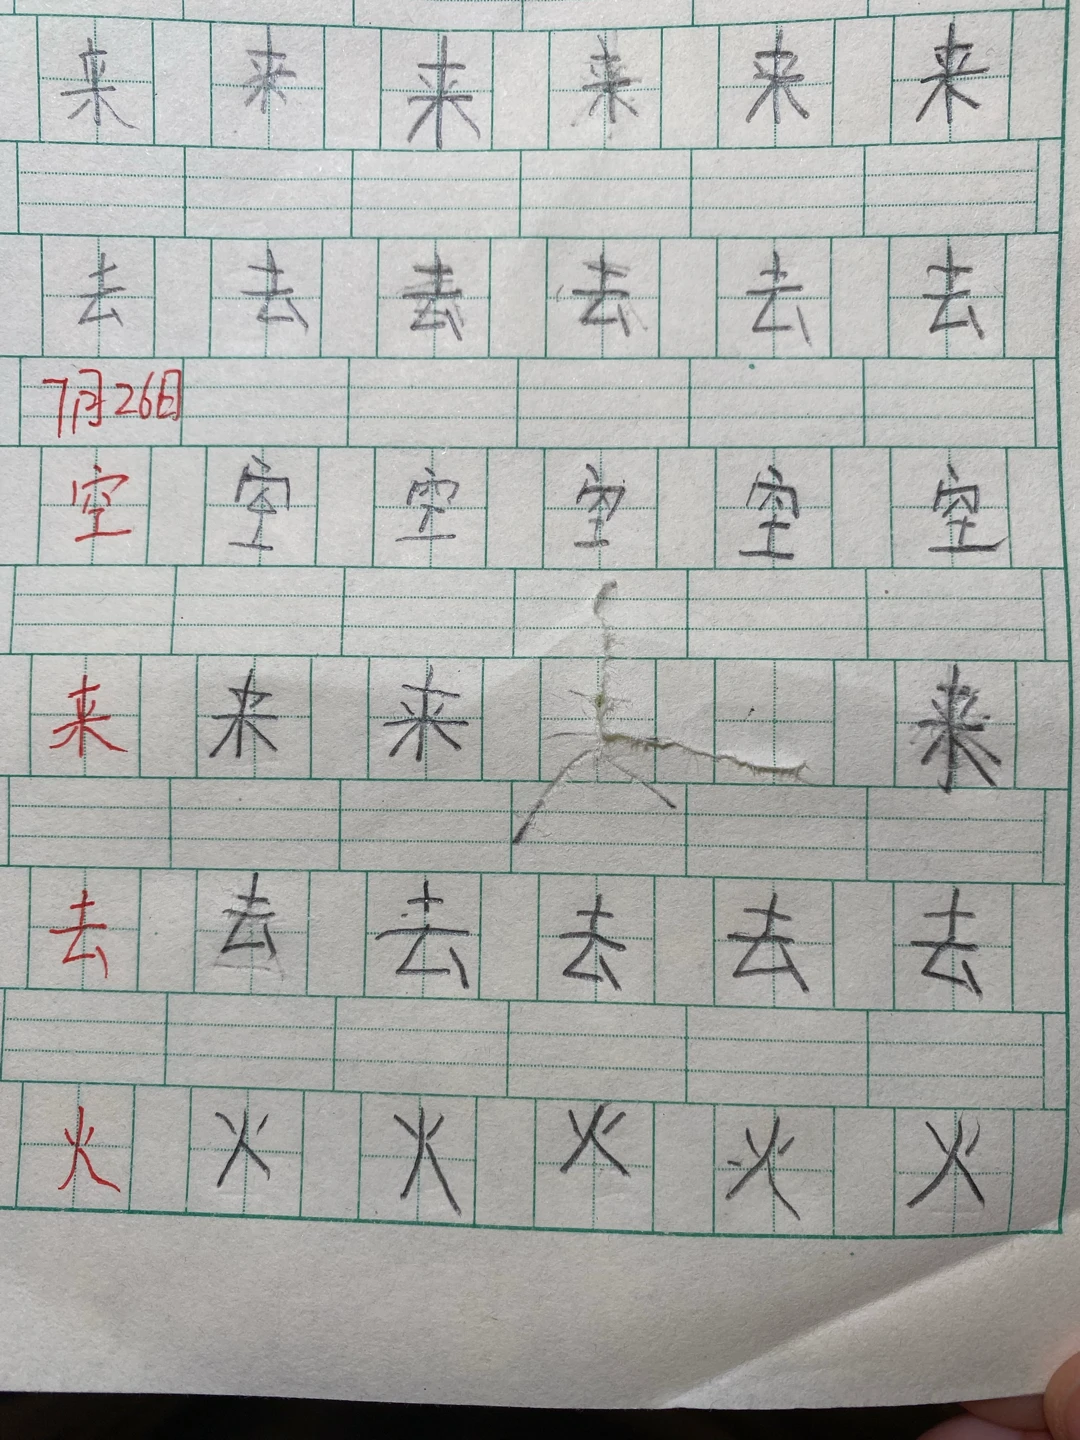 来 来 来 来 来 来
去 去 去 去 去 去
7月26日
空 空 空 空 空 空
来 来 来 来
去 去 去 去 去 去
火 火 火 火 火 火